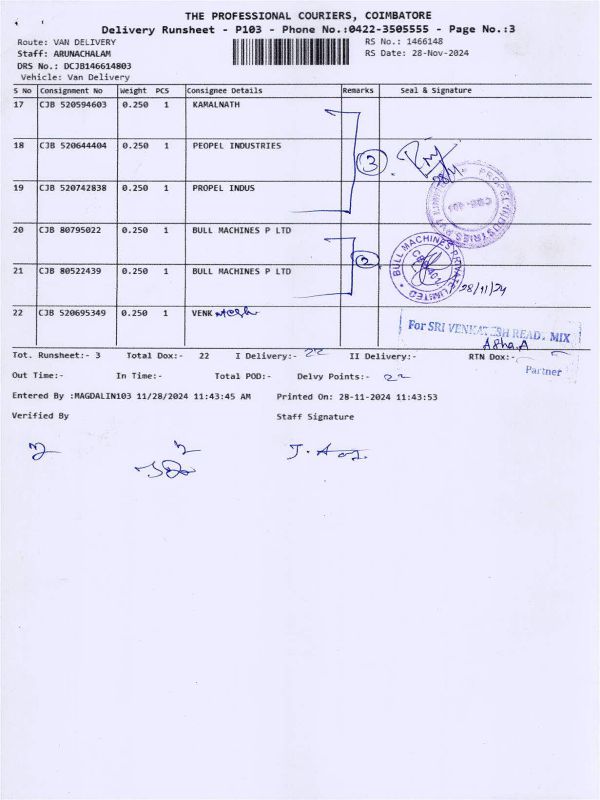 THE PROFESSIONAL COURIERS, COIMBATORE
Delivery Runsheet - P103 - Phone No.:0422-3505555 - Page No.:3
Route: VAN DELIVERY RS No.: 1466148
Staff: ARUNACHALAM RS Date: 28-Nov-2024
DRS No.: DCJB146614803
Vehicle: Van Delivery
S No Consignment No Weight PCS Consignee Details Remarks Seal & Signature
17 CJB 520594603 0.250 1 KAMALNATH
18 CJB 520644404 0.250 1 PEOPEL INDUSTRIES
3
19 CJB 520742838 0.250 1 PROPEL INDUS
PROPEL INDUSTRIES PVT
20 CJB 80795022 0.250 1 BULL MACHINES P LTD
2
BULL MACHINES PRIVATE LIMITED
21 CJB 80522439 0.250 1 BULL MACHINES P LTD
28/11/24
22 CJB 520695349 0.250 1 VENKatesh
For SRI VENKATESH READY MIX
Asha.A
Partner
Tot. Runsheet:- 3 Total Dox:- 22 I Delivery:- 22 II Delivery:- RTN Dox:-
Out Time:- In Time:- Total POD:- Delvy Points:- 22
Entered By :MAGDALIN103 11/28/2024 11:43:45 AM Printed On: 28-11-2024 11:43:53
Verified By Staff Signature